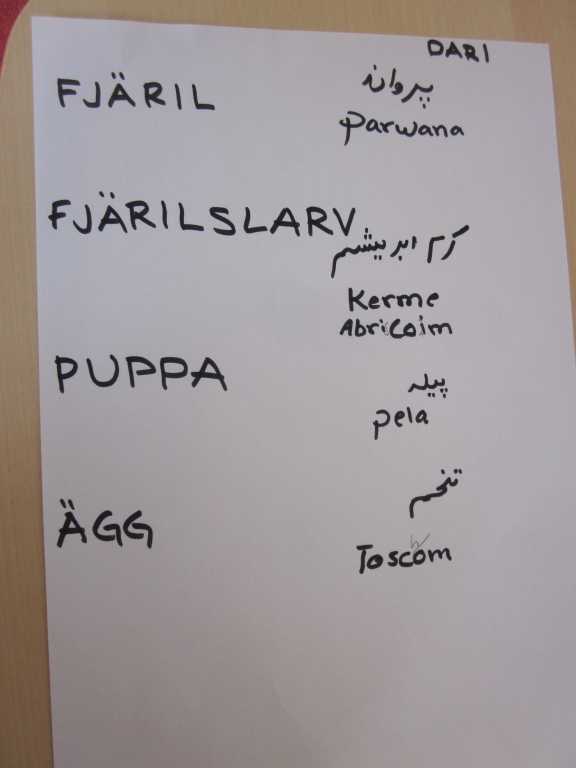 DARI
FJÄRIL
پروانه
Parwana
FJÄRILSLARV
کرم ابریشم
Kerme
Abricoim
PUPPA
پیله
pela
تخم
ÄGG
Toscom